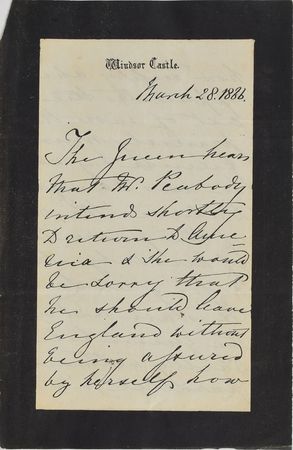 Windsor Castle.
March 28. 1866.
The Queen hears
that Mr. Peabody
intends shortly
to return to Ame
rica & she would
be sorry that
he should leave
England without
being assured
by herself how